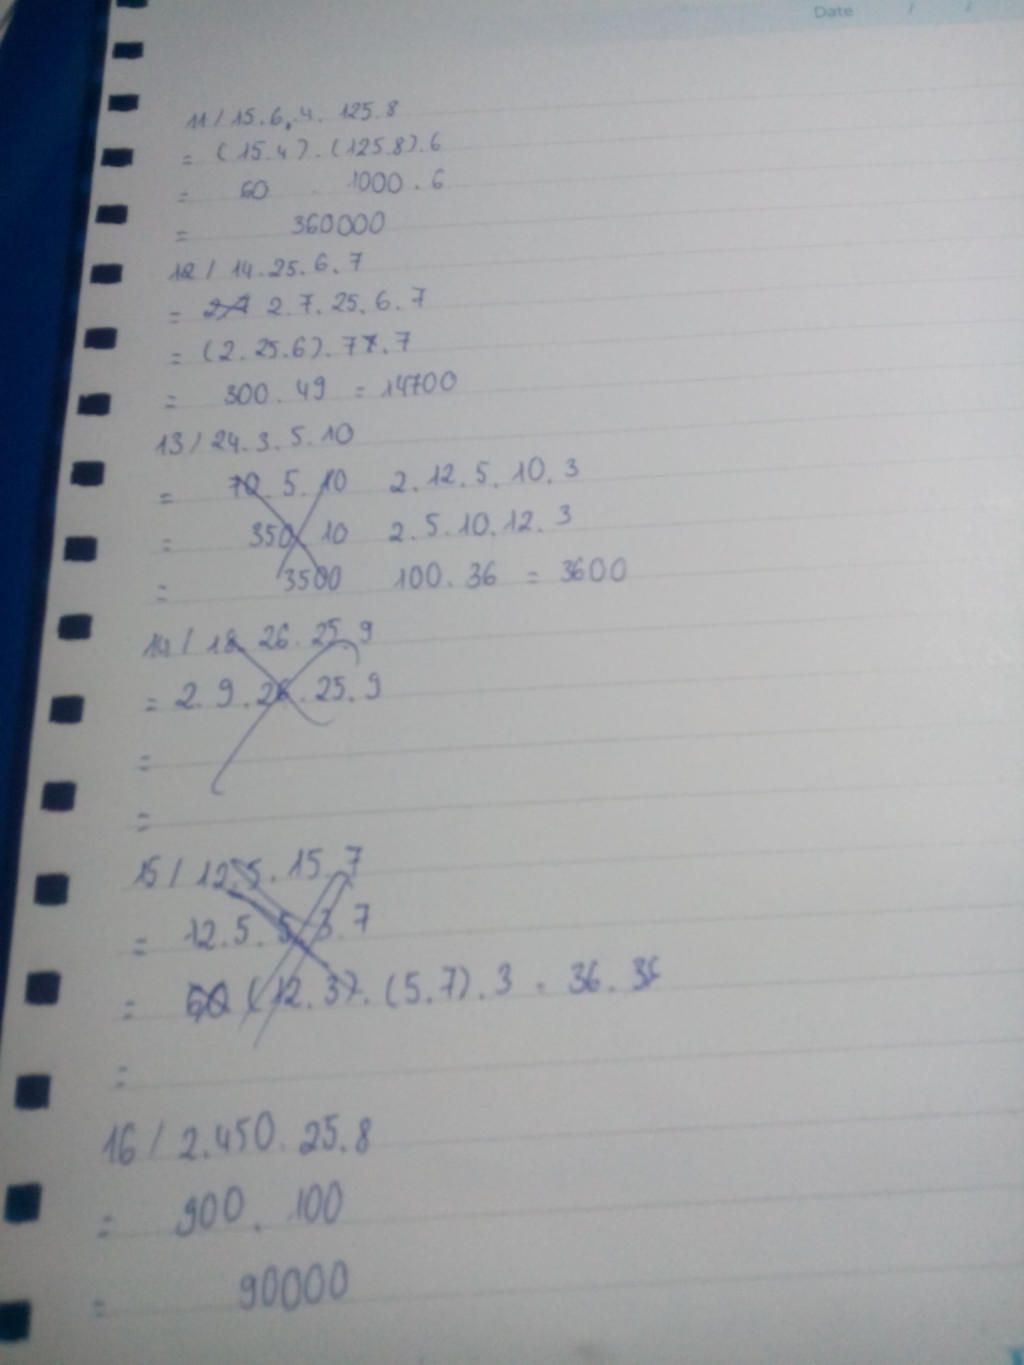 Date / /
11 / 15.6.4.125.8
= (15.4).(125.8).6
= 60 . 1000.6
= 360000
12 / 14.25.6.7
= 2.7.25.6.7
= (2.25.6).7.7
= 300.49 = 14700
13 / 24.3.5.10
= 70.5.10 2.12.5.10.3
= 350.10 2.5.10.12.3
= 3500 100.36 = 3600
14 / 18.26.25.9
= 2.9.26.25.9
=
=
15 / 12.5.15.7
= 12.5.5.3.7
= 60 (12.3).(5.7).3 = 36.36
=
16 / 2.450.25.8
= 900.100
= 90000